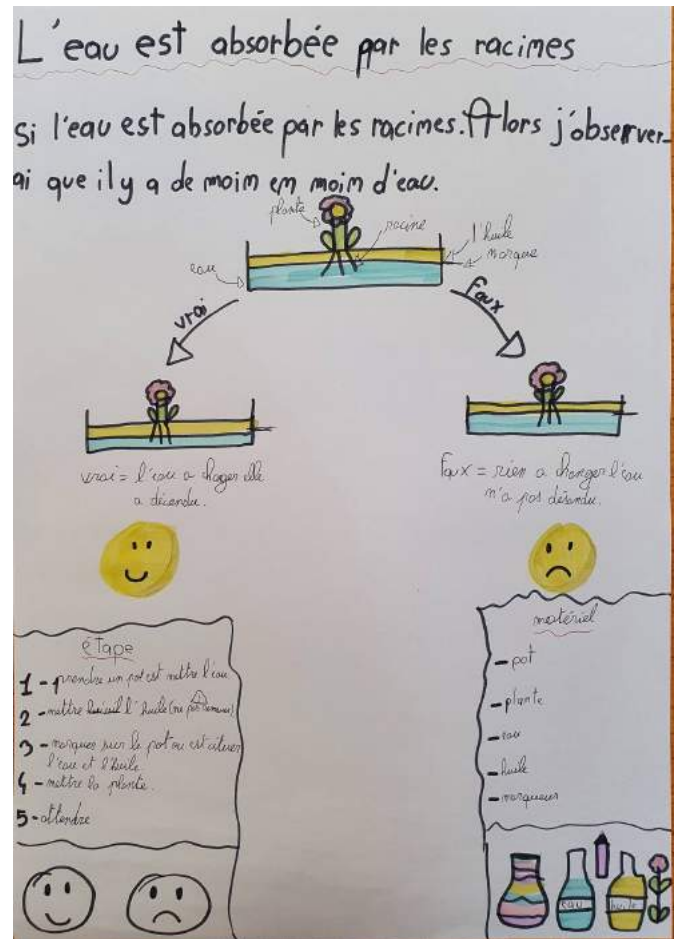 L'eau est absorbée par les racines
Si l'eau est absorbée par les racines. Alors j'observer-
ai que il y a de moim em moim d'eau.
plante
racine
l'huile
marque
eau
vrai
faux
vrai = l'eau a chager elle
a décendu.
faux = rien a changer l'eau
n'a pas désendu.
étape
1 - prendre un pot est mettre l'eau
2 - mettre l'huile (ne pas remuer)
3 - marquer sur le pot ou est situer
l'eau et l'huile.
4 - mettre la plante.
5 - attendre
matériel
- pot
- plante
- eau
- huile
- marqueur
eau
huile